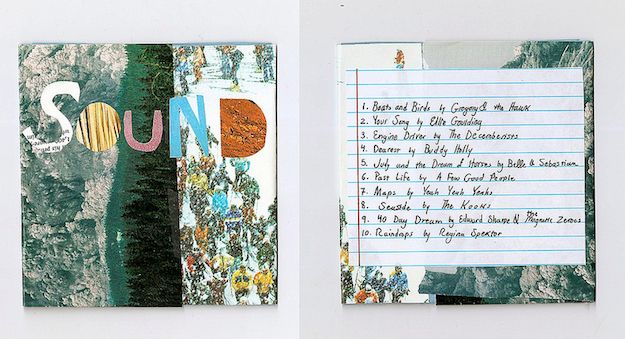 SOUND
1. Boats and Birds by Gregory & the Hawk
2. Your Song by Ellie Goulding
3. Engine Driver by The Decemberists
4. Dearest by Buddy Holly
5. Judy and the Dream of Horses by Belle & Sebastian
6. Past Life by A Few Good People
7. Maps by Yeah Yeah Yeahs
8. Seaside by The Kooks
9. 40 Day Dream by Edward Sharpe & the Magnetic Zeroes
10. Raindrops by Regina Spektor